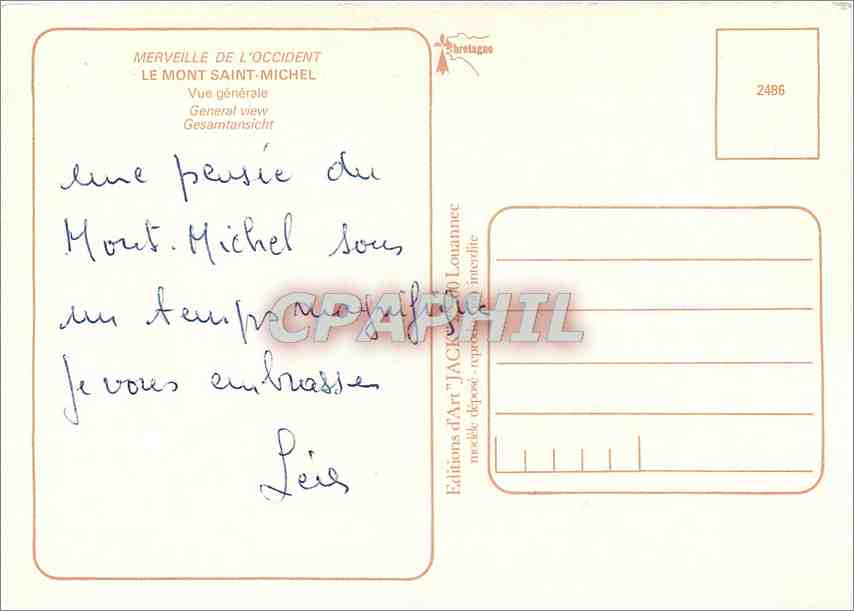 MERVEILLE DE L'OCCIDENT
LE MONT SAINT-MICHEL
Vue générale
General view
Gesamtansicht
une pensée du
Mont-Michel sous
un temps magnifique
je vous embrasse
bretagne
2486
Editions d'Art "JACK" Louannec
modèle déposé - reproduction interdite
CPAPHIL